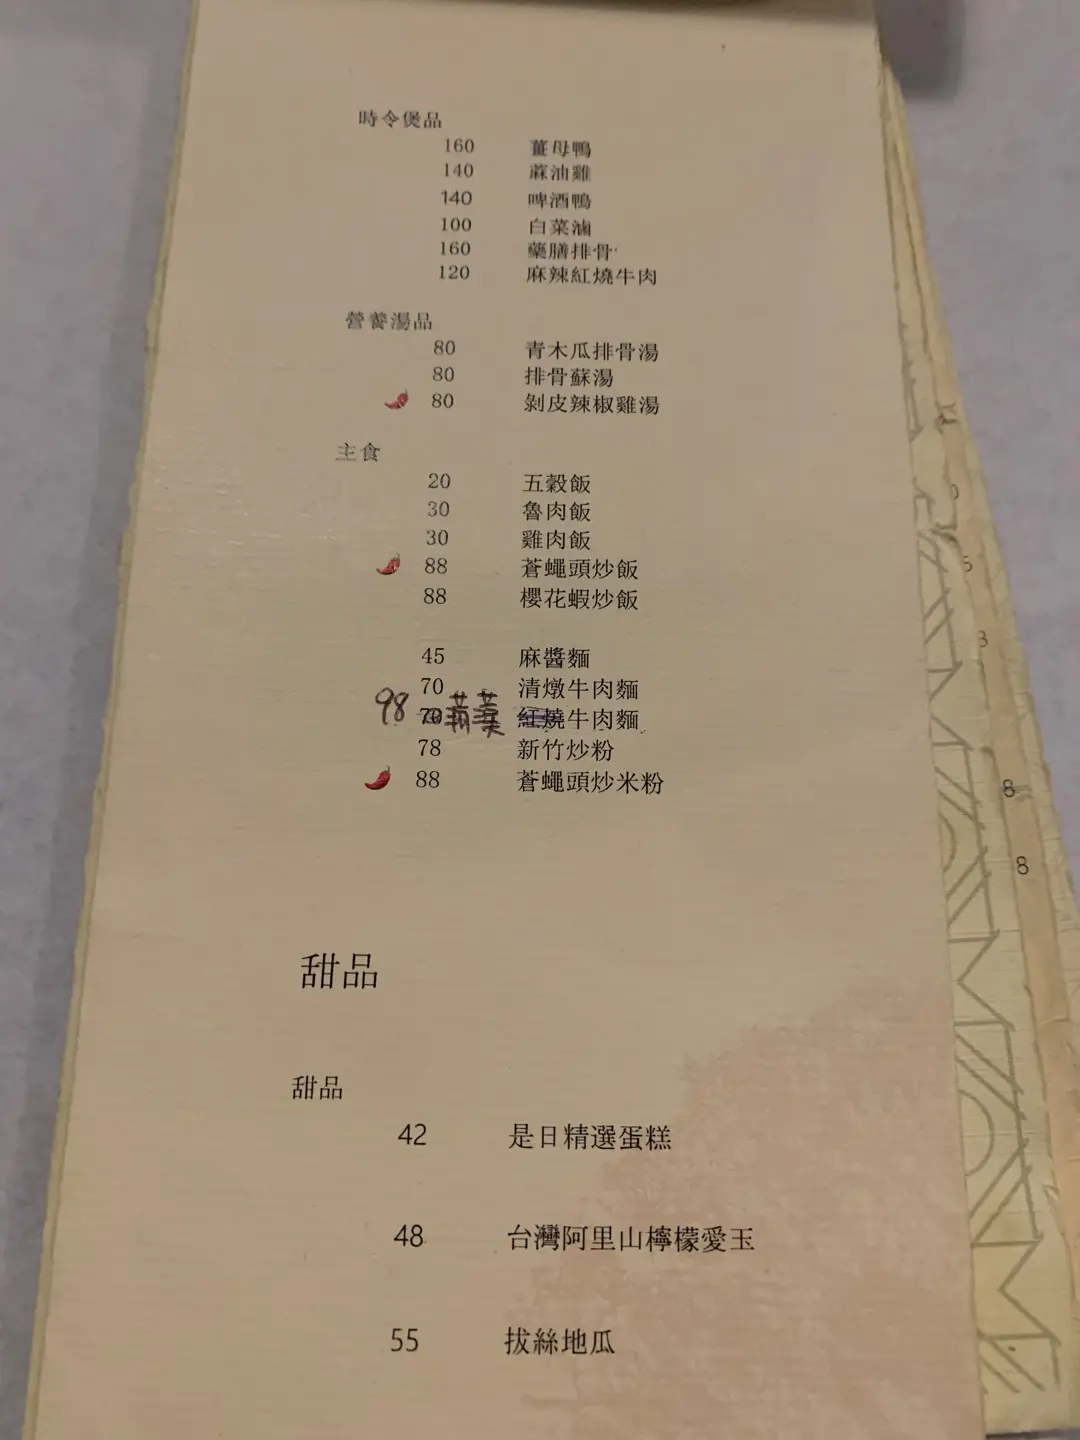 時令煲品
160 薑母鴨
140 蔴油雞
140 啤酒鴨
100 白菜滷
160 藥膳排骨
120 麻辣紅燒牛肉
營養湯品
80 青木瓜排骨湯
80 排骨蘇湯
80 剝皮辣椒雞湯
主食
20 五穀飯
30 魯肉飯
30 雞肉飯
88 蒼蠅頭炒飯
88 櫻花蝦炒飯
45 麻醬麵
70 清燉牛肉麵
98 70 紅燒牛肉麵
78 新竹炒粉
88 蒼蠅頭炒米粉
甜品
甜品
42 是日精選蛋糕
48 台灣阿里山檸檬愛玉
55 拔絲地瓜
5
3
8
8